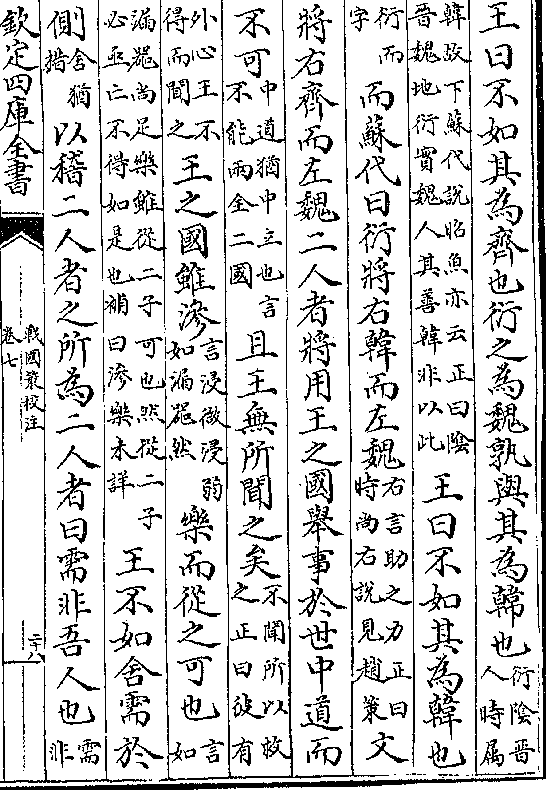 王曰不如其為齊也衍之為魏孰與其為韓也衍陰晋人時属
韓故下蘇代説昭魚亦云正曰陰晉魏地衍實魏人其善韓非以此王曰不如其為韓也
衍而字而蘇代曰衍將右韓而左魏右言助之力正曰時尚右説見趙策文
將右齊而左魏二人者將用王之國舉事於世中道而
不可中道猶中立也言不能兩全二國且王無所聞之矣不聞所以救之正曰彼有
外心王不得而聞之王之國雖滲言浸微浸弱如漏器然樂而從之可也言如
漏器尚足樂雖從二子可也然從二子必亟亡不得如是也補曰滲樂未詳王不如舍需於
側舍猶措以稽二人者之所為二人者曰需非吾人也需非
欽定四庫全書
戰國策校注
卷七
二十八